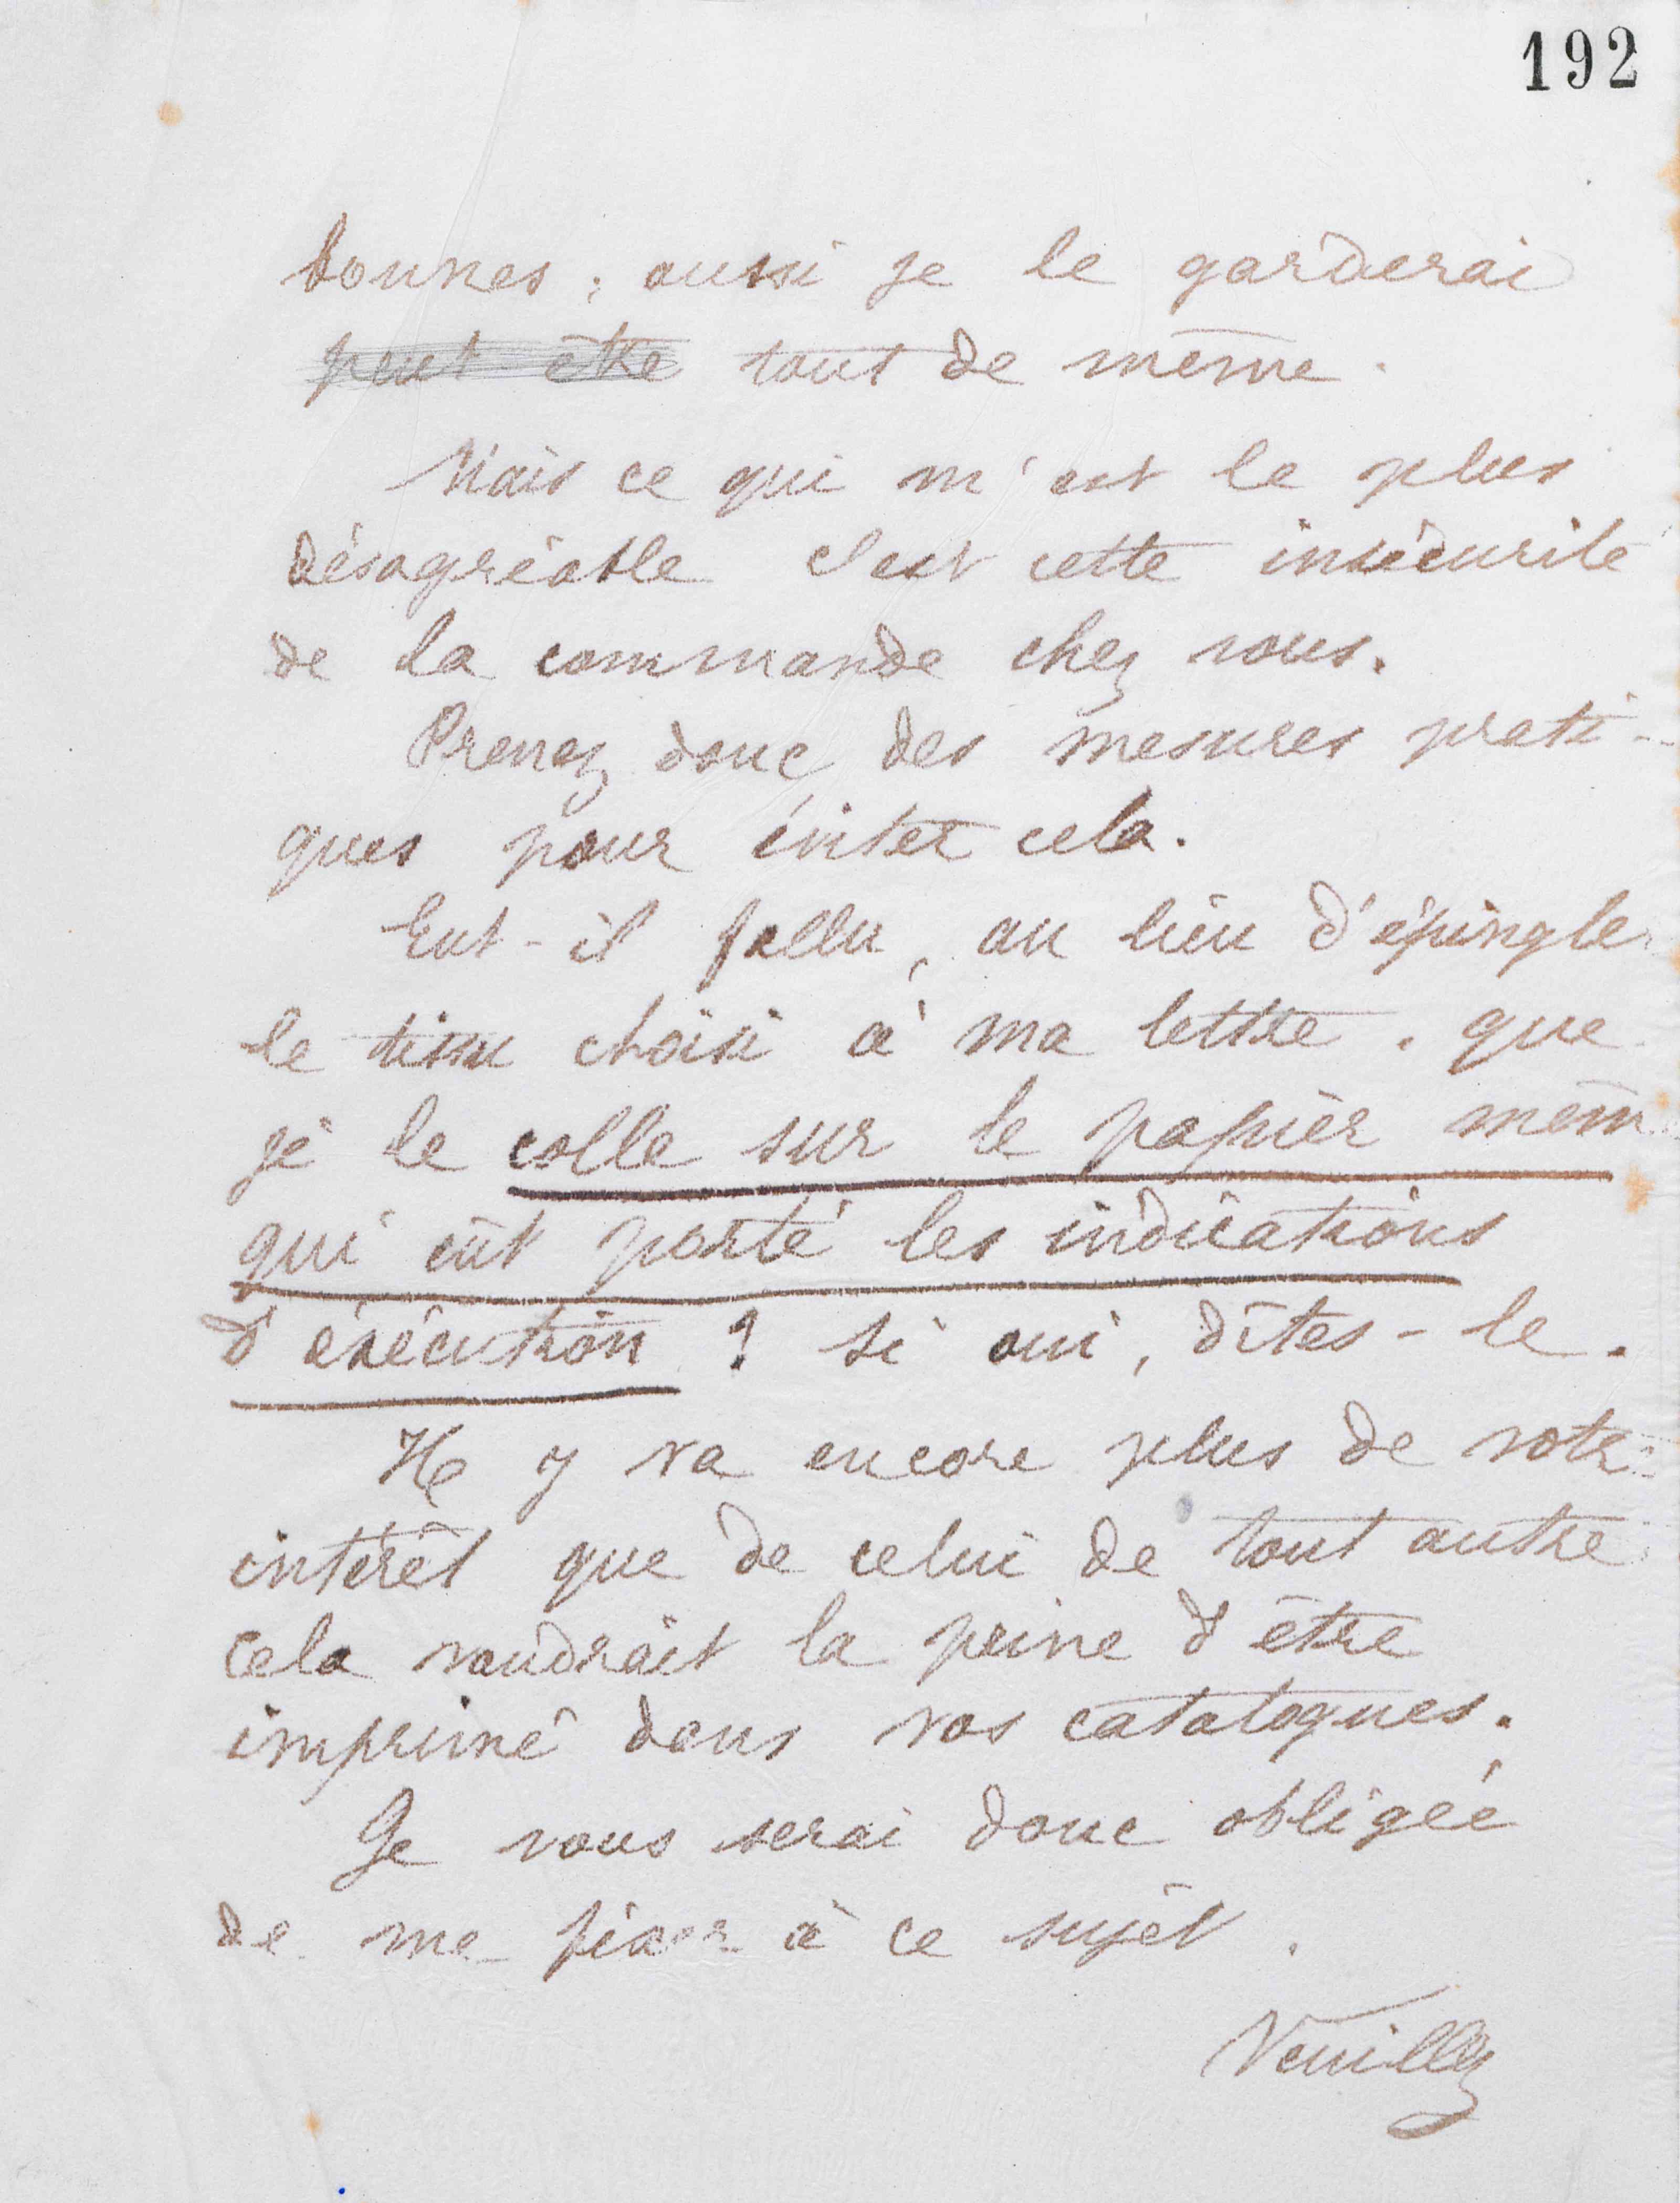 192
bonnes ; aussi je le garderai
peut-être tout de même.
Mais ce qui m'est le plus
désagréable c'est cette insécurité
de la commande chez vous.
Prenez donc des mesures prati-
ques pour éviter cela.
Eut-il fallu, au lieu d'épingle
le tissu choisi à ma lettre, que
je le colle sur le papier mêm
qui eût porté les indications
d'exécution ? si oui, dîtes-le.
Il y va encore plus de votr
intérêt que de celui de tout autre
Cela vaudrait la peine d'être
imprimé dans vos catalogues.
Je vous serai donc obligée
de me fixer à ce sujet.
Veuillez